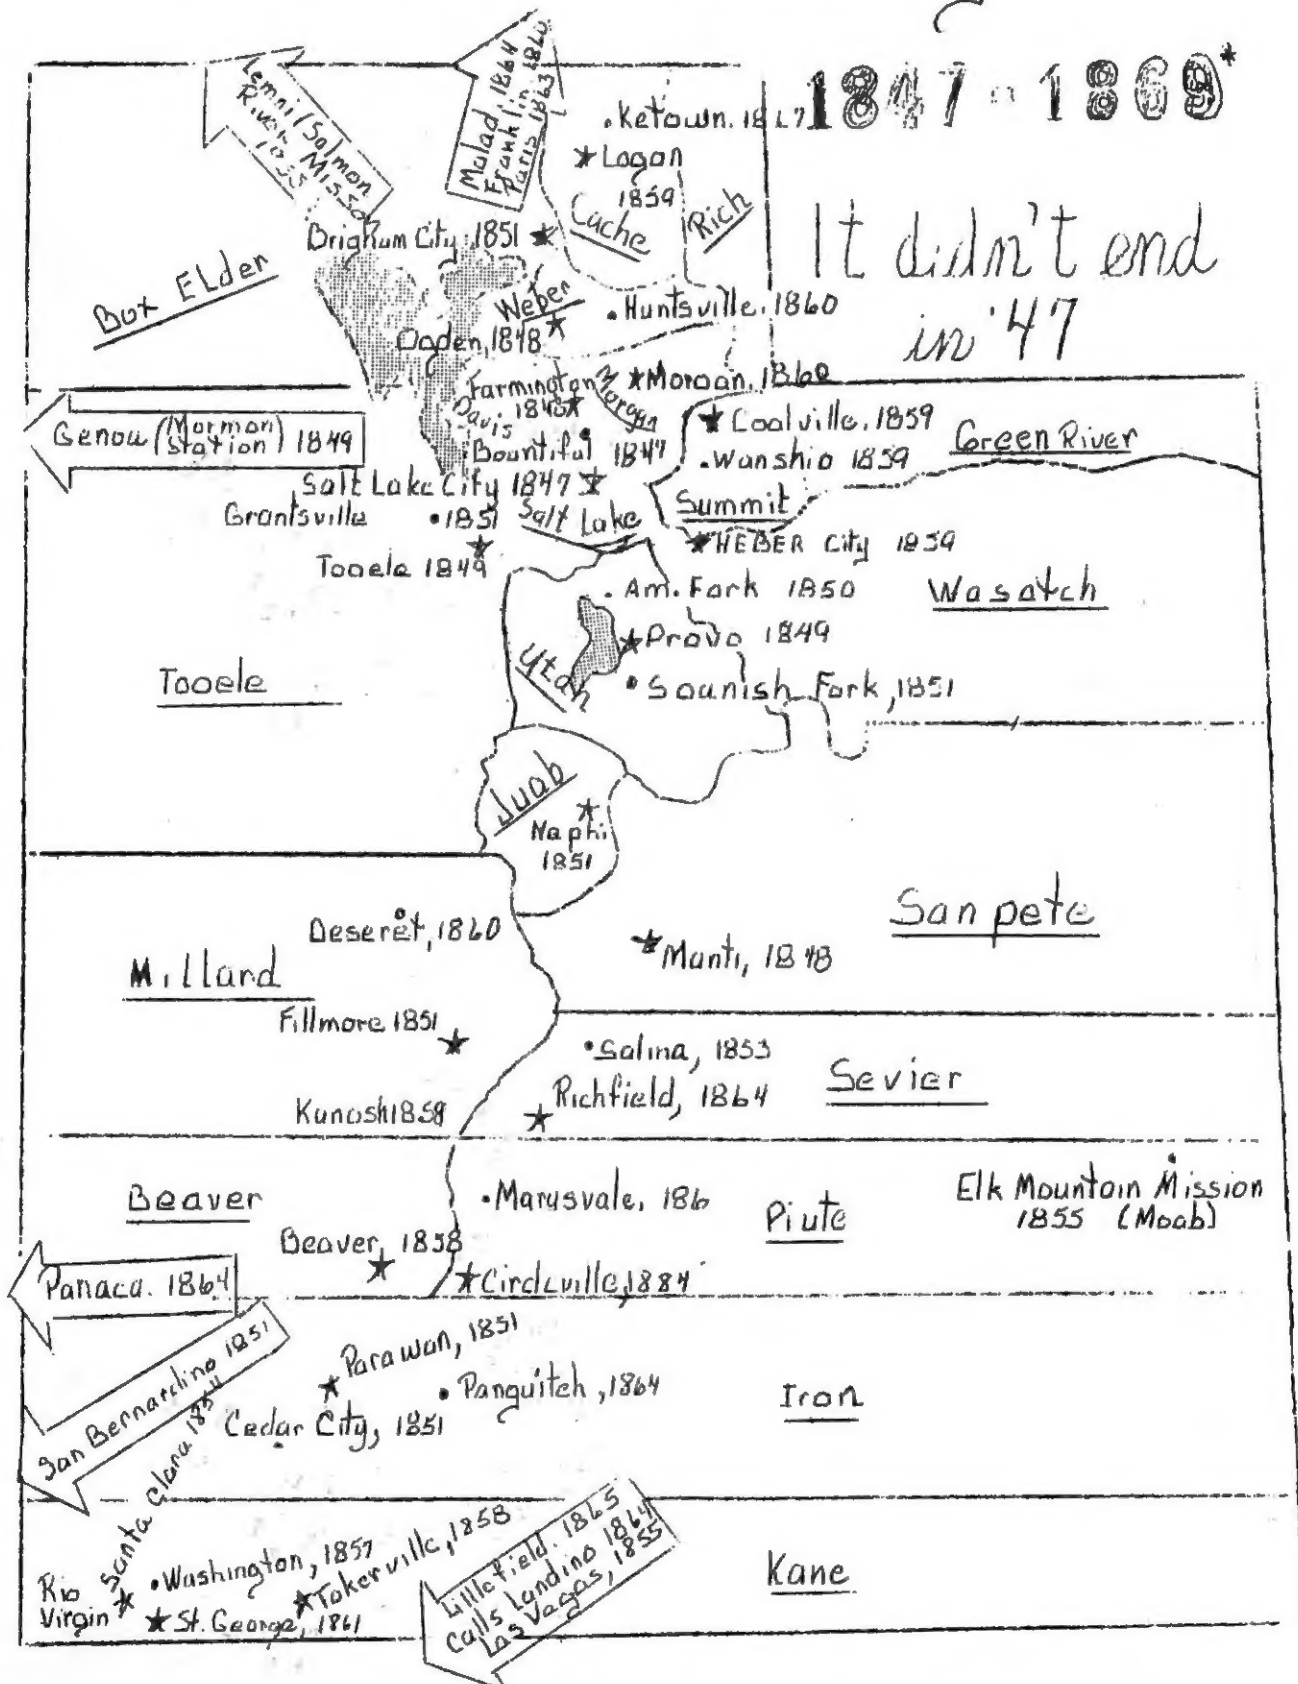 1847-1869*
It didn't end
in '47
Lemhi/Salmon
River Mission
1855
Malad, 1864
Franklin, 1860
Paris 1863
Ketown. 1867
Logan
1859
Cache
Rich
Brigham City, 1851
Box Elder
Weber
Huntsville, 1860
Ogden, 1848
Farmington
1848
Davis
Morgan
Morgan, 1860
Genoa (Mormon
Station) 1849
Bountiful 1847
Coalville, 1859
Wanship 1859
Green River
Salt Lake City 1847
Summit
Grantsville 1851
Salt Lake
HEBER City 1859
Tooele 1849
Am. Fork 1850
Wasatch
Provo 1849
Utah
Spanish Fork, 1851
Tooele
Juab
Nephi
1851
Sanpete
Deseret, 1860
Manti, 1848
Millard
Fillmore 1851
Salina, 1853
Sevier
Richfield, 1864
Kanosh 1859
Beaver
Marysvale, 186
Piute
Elk Mountain Mission
1855 (Moab)
Beaver, 1858
Panaca. 1864
Circleville, 1884
San Bernardino 1851
Parawan, 1851
Panguitch, 1864
Iron
Cedar City, 1851
Santa Clara 1854
Rio
Virgin
Washington, 1857
Tokerville, 1858
St. George, 1861
Littlefield. 1865
Calls Landing 1864
Las Vegas, 1855
Kane